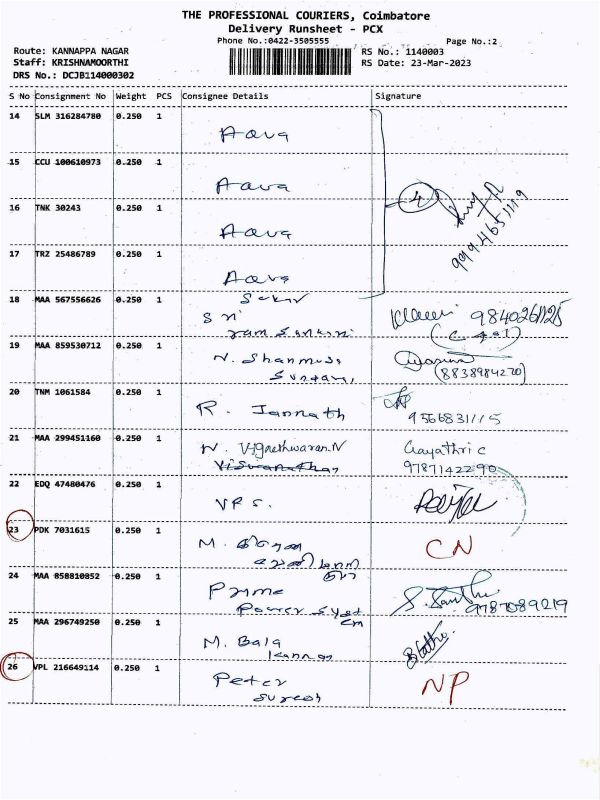 THE PROFESSIONAL COURIERS, Coimbatore
Delivery Runsheet - PCX
Phone No.:0422-3505555 Page No.:2
Route: KANNAPPA NAGAR RS No.: 1140003
Staff: KRISHNAMOORTHI RS Date: 23-Mar-2023
DRS No.: DCJB114000302
S No Consignment No Weight PCS Consignee Details Signature
14 SLM 316284780 0.250 1
Aava
15 CCU 100610973 0.250 1
Aava 4
16 TNK 30243 0.250 1
Aava
17 TRZ 25486789 0.250 1
Aava
18 MAA 567556626 0.250 1
Sri 9840261125
19 MAA 859530712 0.250 1
N. Shanmuga
Sundaram (8838984270)
20 TNM 1061584 0.250 1
R. Jannath 9566831115
21 MAA 299451160 0.250 1 Gayathri C
N. Vigneshwaran.N
Viswanathan 9787142290
22 EDQ 47480476 0.250 1
VPS.
23 PDK 7031615 0.250 1
M. CN
24 MAA 858810852 0.250 1
Prime
Power System 9787089219
25 MAA 296749250 0.250 1
M. Bala
Kannan
26 VPL 216649114 0.250 1
Peter NP
Suresh